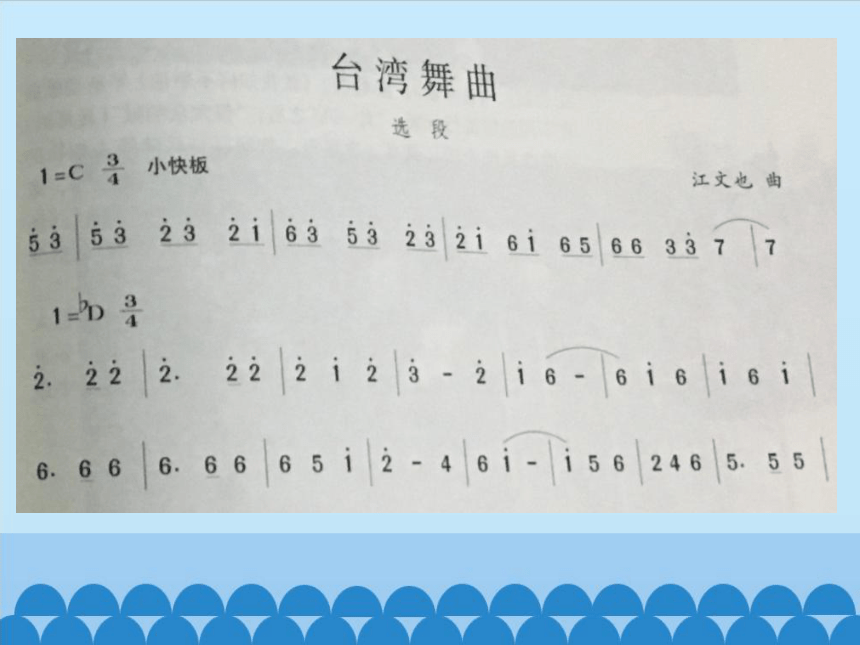 台湾舞曲
选 段
1=C 3/4 小快板
江文也 曲
5̇ 3̇ | 5̇ 3̇ 2̇ 3̇ 2̇ 1̇ | 6̇ 3̇ 5̇ 3̇ 2̇ 3̇ | 2̇ 1̇ 6 1̇ 6 5 | 6 6 3 3̇ 7 | 7
1=♭D 3/4
2̇. 2̇ 2̇ | 2̇. 2̇ 2̇ | 2̇ 1̇ 2̇ | 3̇ - 2̇ | 1̇ 6 - | 6 1̇ 6 | 1̇ 6 1̇ |
6. 6 6 | 6. 6 6 | 6 5 1̇ | 2̇ - 4 | 6 1̇ - | 1̇ 5 6 | 2 4 6 | 5. 5 5 |